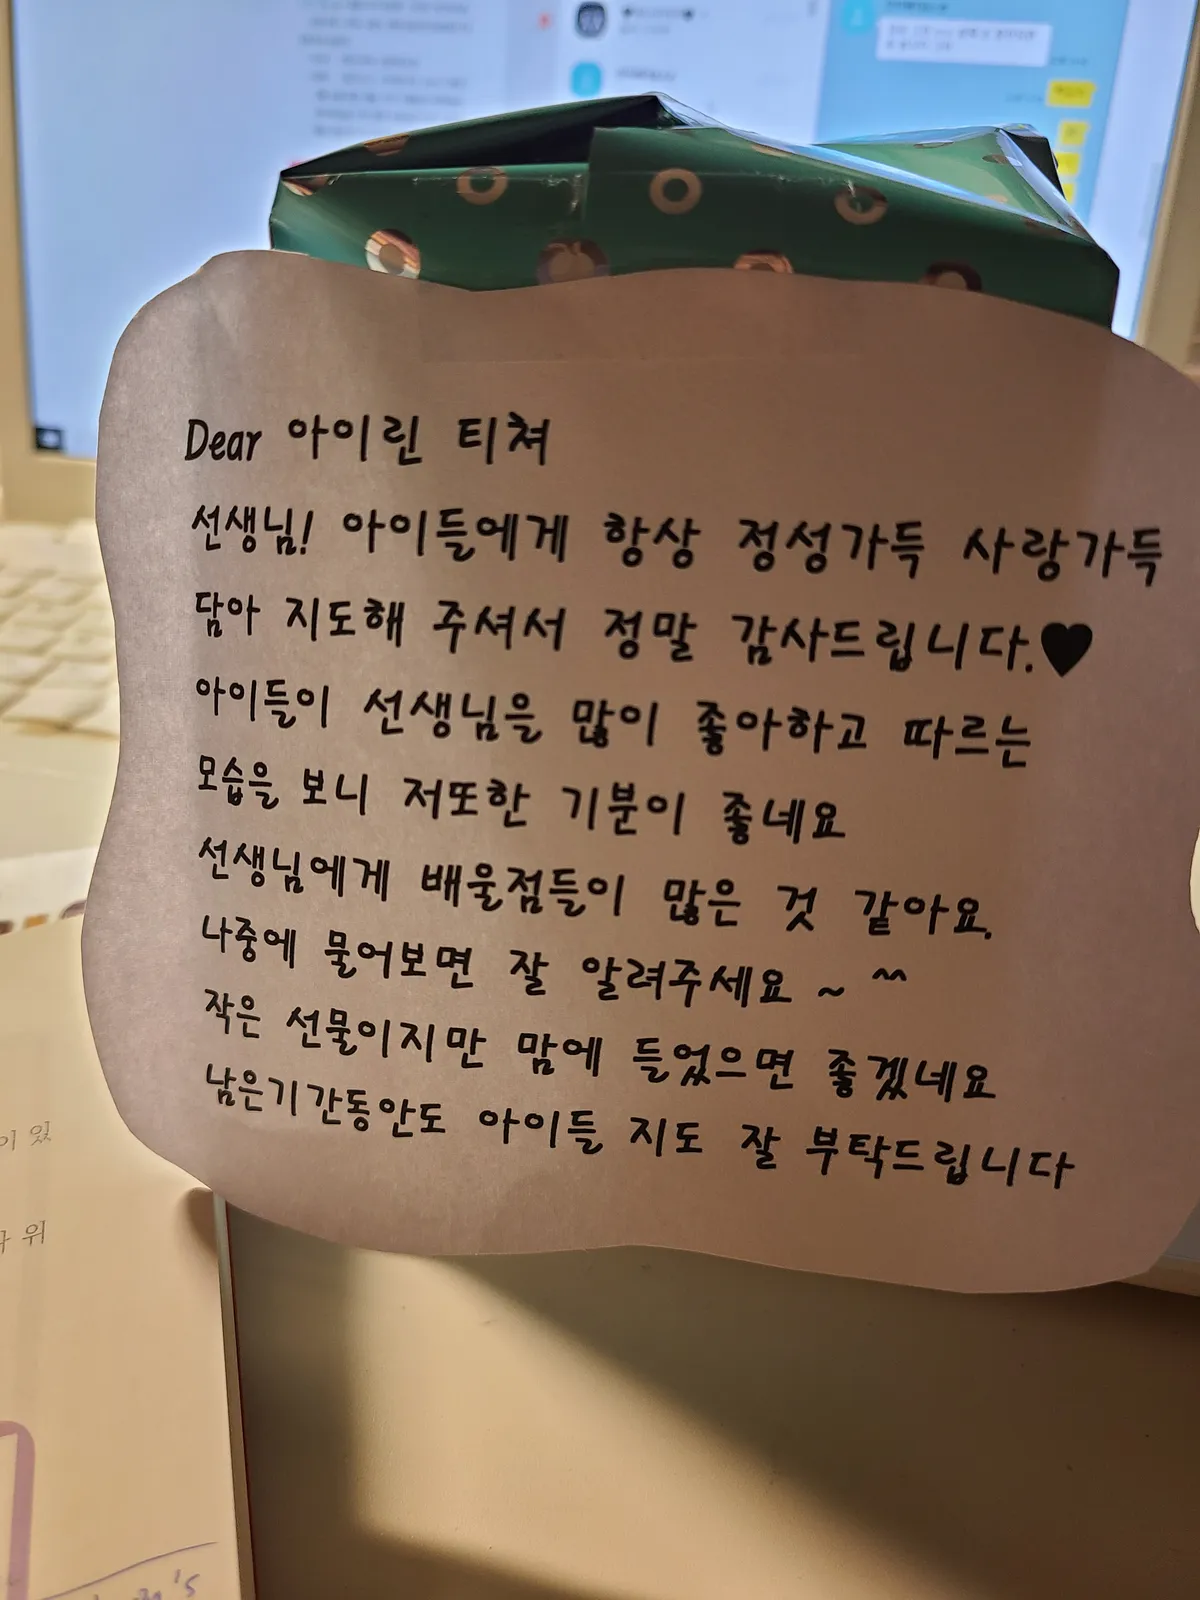 Dear 아이린 티쳐
선생님! 아이들에게 항상 정성가득 사랑가득
담아 지도해 주셔서 정말 감사드립니다.♥
아이들이 선생님을 많이 좋아하고 따르는
모습을 보니 저또한 기분이 좋네요
선생님에게 배울점들이 많은 것 같아요.
나중에 물어보면 잘 알려주세요 ~ ^^
작은 선물이지만 맘에 들었으면 좋겠네요
남은기간동안도 아이들 지도 잘 부탁드립니다
이 있
위